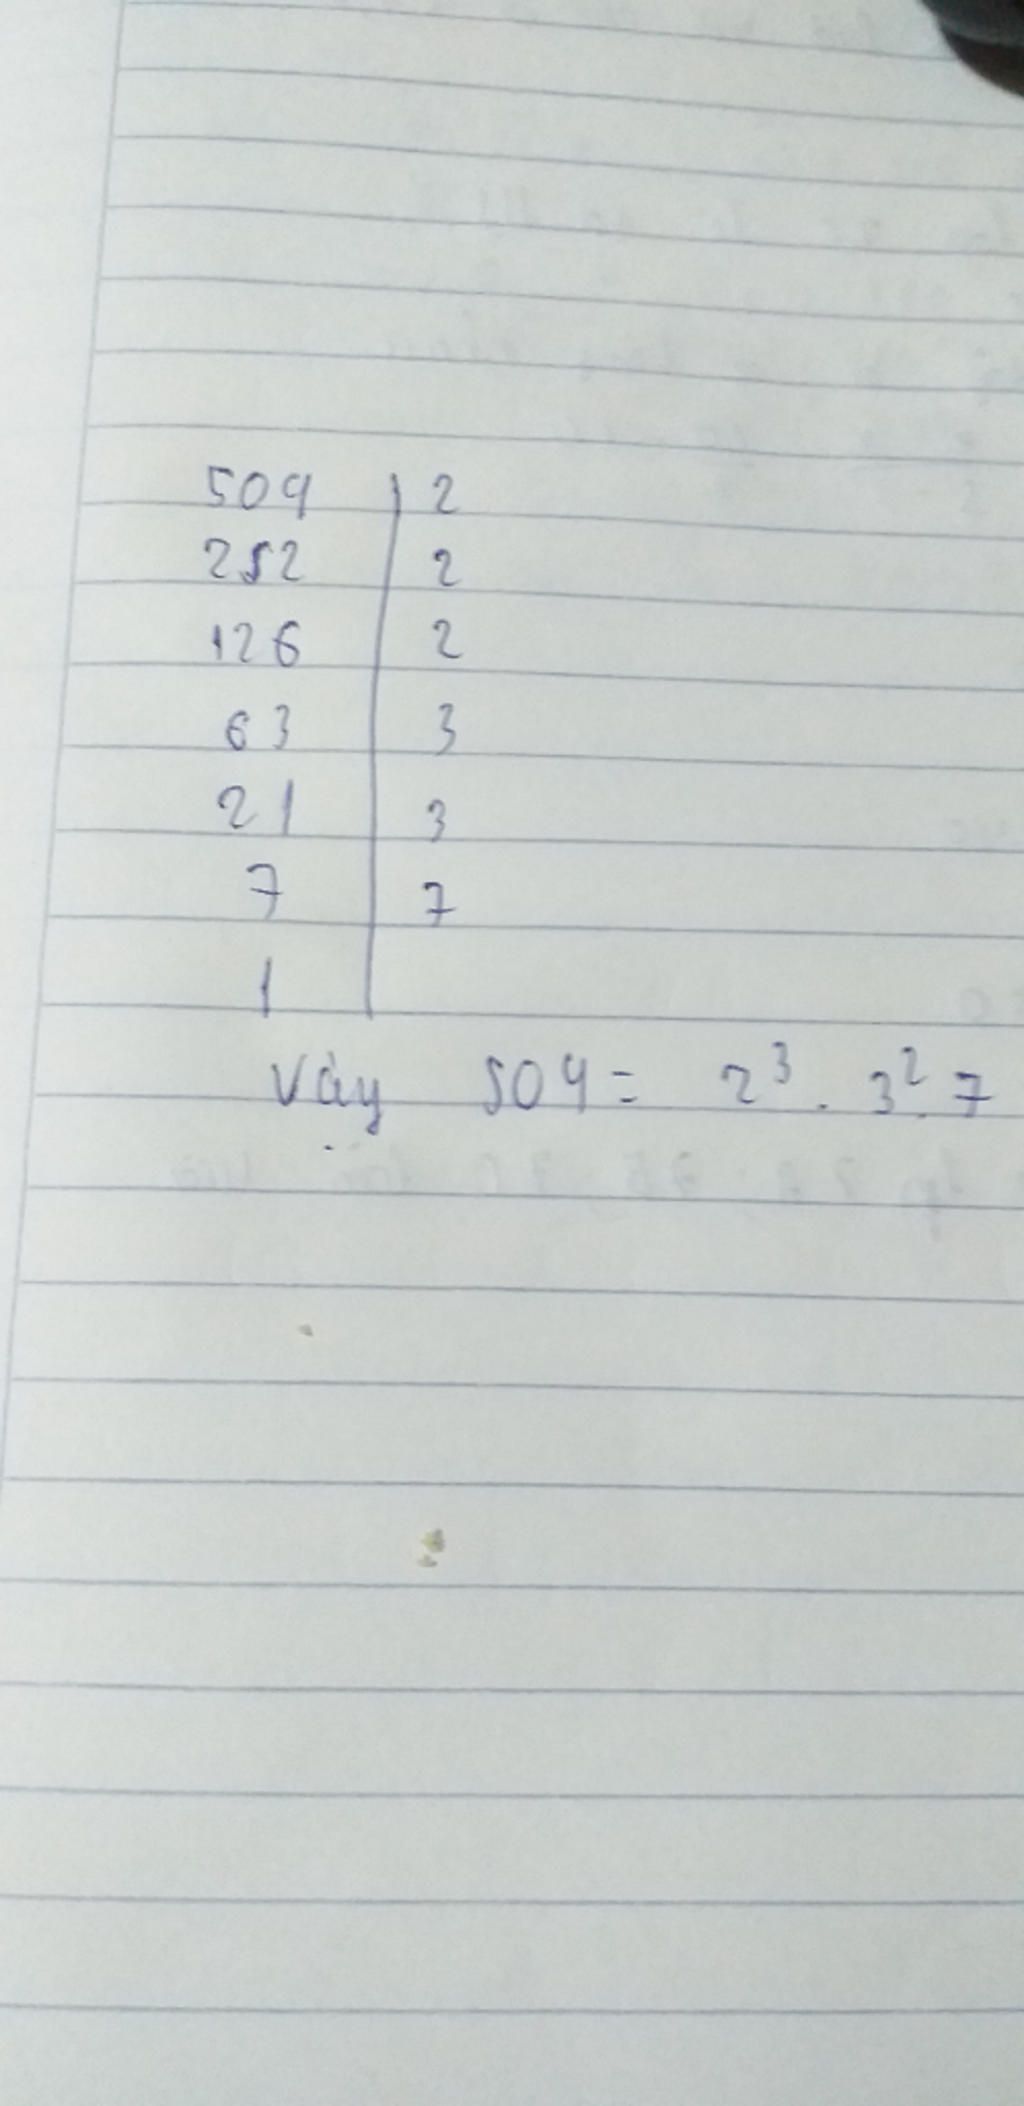 504 | 2
252 | 2
126 | 2
63 | 3
21 | 3
7 | 7
1 |
Vậy 504 = 2³ . 3² . 7